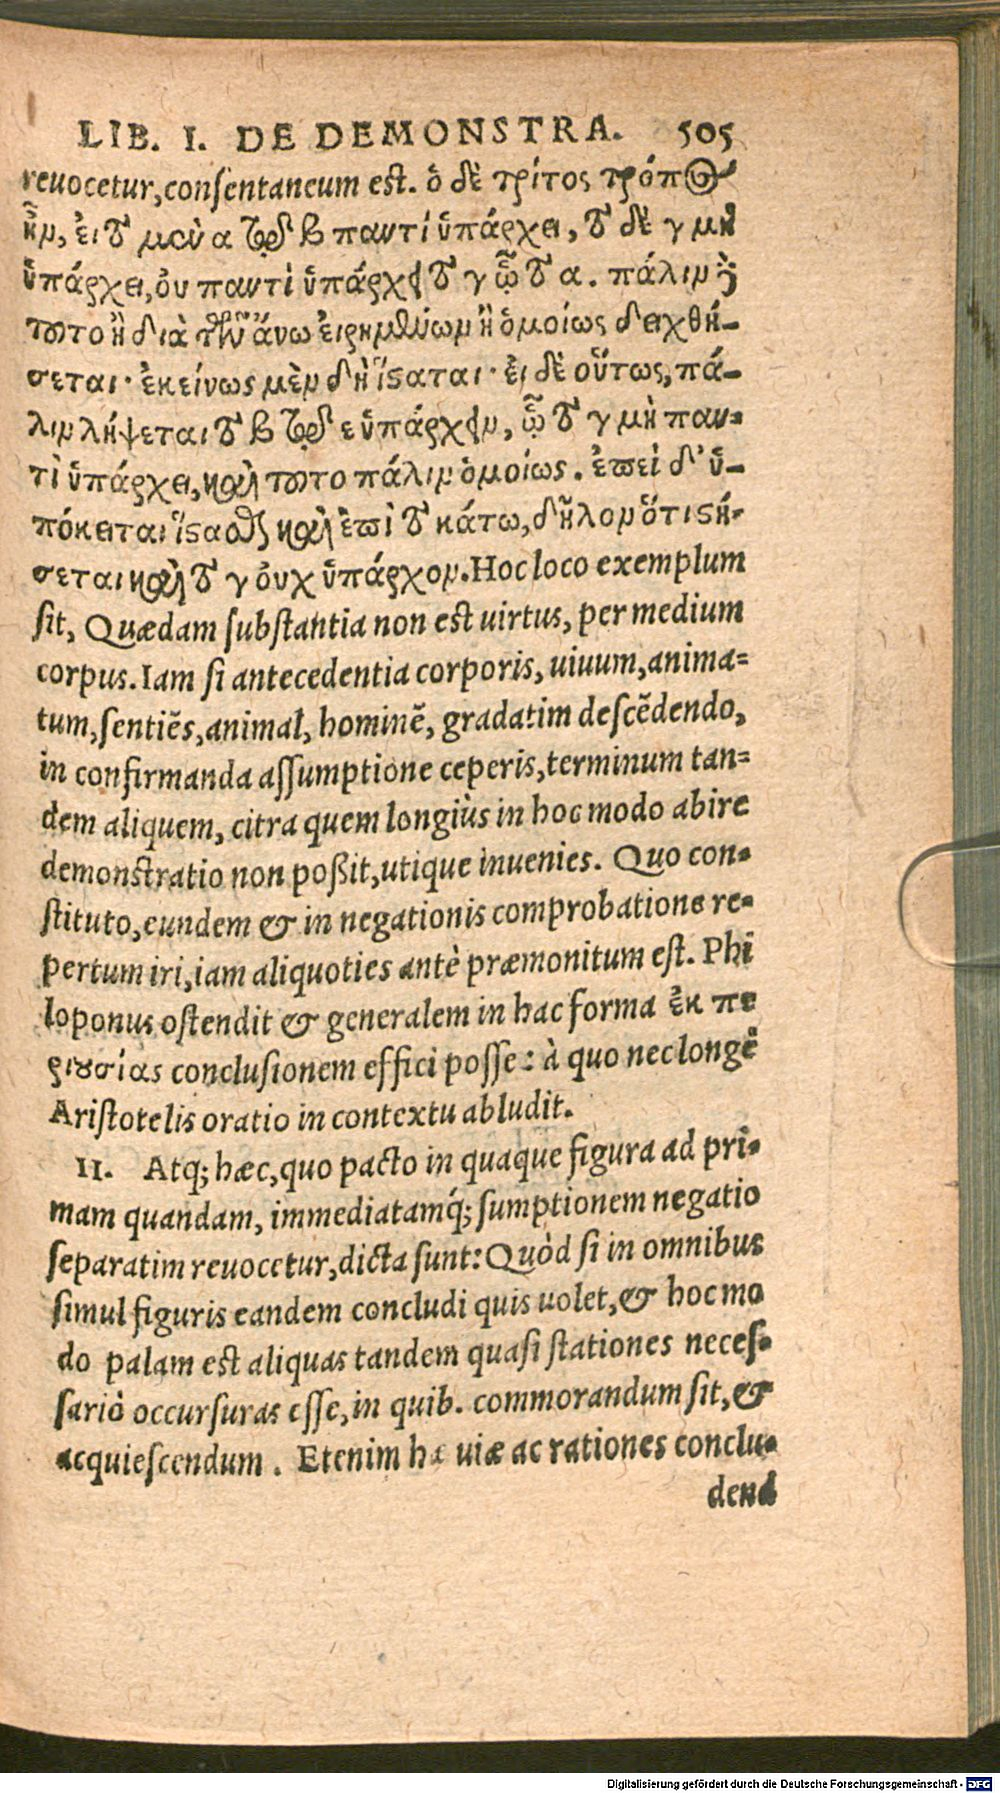 LIB. I. DE DEMONSTRA. 505
reuocetur, consentaneum est. ὁ δὲ τρίτος τρόπος
ἦν, εἰ τὸ μὲν α τῷ β παντὶ ὑπάρχει, τὸ δὲ γ μὴ
ὑπάρχει, οὐ παντὶ ὑπάρχει τὸ γ ᾧ τὸ α. πάλιν δὲ
τοῦτο ἢ διὰ τῶν ἄνω εἰρημένων ἢ ὁμοίως δειχθή-
σεται· ἐκείνως μὲν δὴ ἵσταται· εἰ δὲ οὕτως, πά-
λιν λήψεται τὸ β τῷ ε ὑπάρχειν, ᾧ τὸ γ μὴ παν-
τὶ ὑπάρχει, καὶ τοῦτο πάλιν ὁμοίως. ἐπεὶ δ' ὑ-
πόκειται ἵσταθαι καὶ ἐπὶ τὸ κάτω, δῆλον ὅτι στή-
σεται καὶ τὸ γ οὐχ ὑπάρχον. Hoc loco exemplum
sit, Quædam substantia non est uirtus, per medium
corpus. Iam si antecedentia corporis, uiuum, anima=
tum, sentiẽs, animal, hominẽ, gradatim descẽdendo,
in confirmanda assumptione ceperis, terminum tan=
dem aliquem, citra quem longiùs in hoc modo abire
demonstratio non poßit, utique inuenies. Quo con-
stituto, eundem & in negationis comprobatione re-
pertum iri, iam aliquoties antè præmonitum est. Phi
loponus ostendit & generalem in hac forma ἐκ πε
ριουσίας conclusionem effici posse: à quo nec longè
Aristotelis oratio in contextu abludit.
II. Atq; hæc, quo pacto in quaque figura ad pri-
mam quandam, immediatamq́; sumptionem negatio
separatim reuocetur, dicta sunt: Quòd si in omnibus
simul figuris eandem concludi quis uolet, & hoc mo
do palam est aliquas tandem quasi stationes neces-
sariò occursuras esse, in quib. commorandum sit, &
acquiescendum. Etenim hæ uiæ ac rationes conclu-
dend
Digitalisierung gefördert durch die Deutsche Forschungsgemeinschaft - DFG